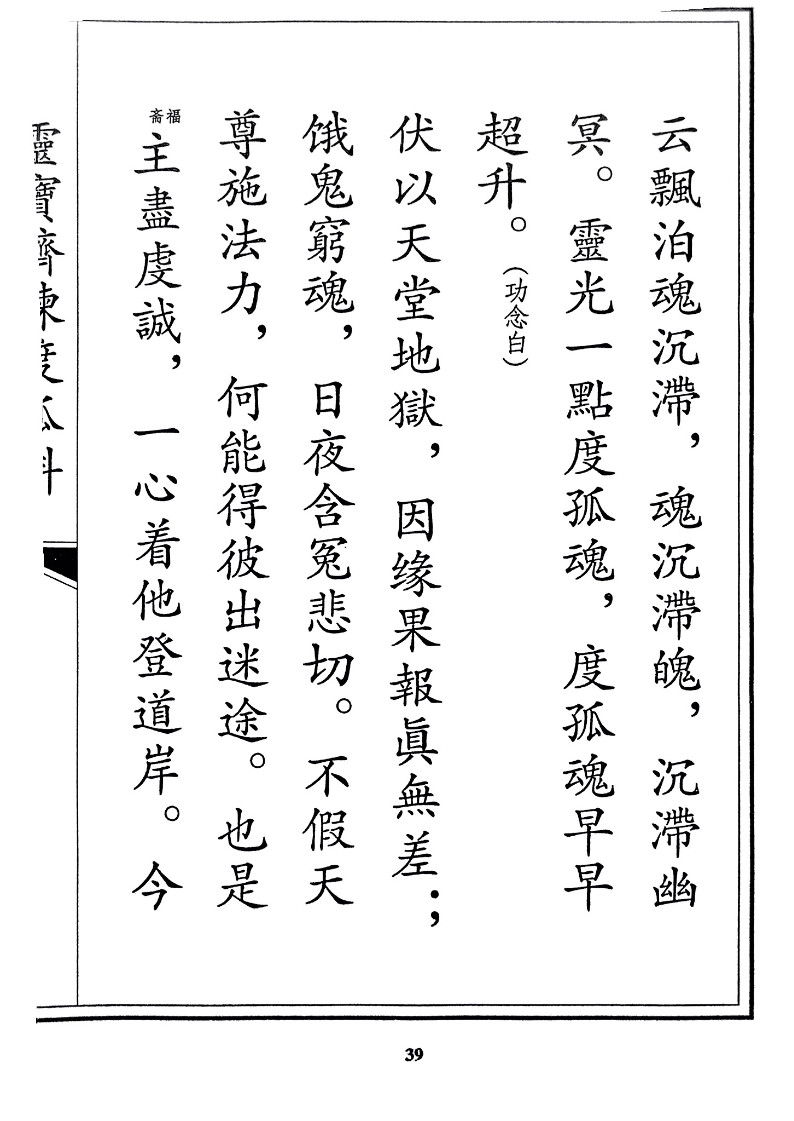 云飄泊魂沉滯，魂沉滯魄，沉滯幽
冥。靈光一點度孤魂，度孤魂早早
超升。（功念白）
伏以天堂地獄，因缘果報眞無差；
饿鬼窮魂，日夜含冤悲切。不假天
尊施法力，何能得彼出迷途。也是
福斋
主盡虔誠，一心着他登道岸。今
靈寶濟煉度孤科
39